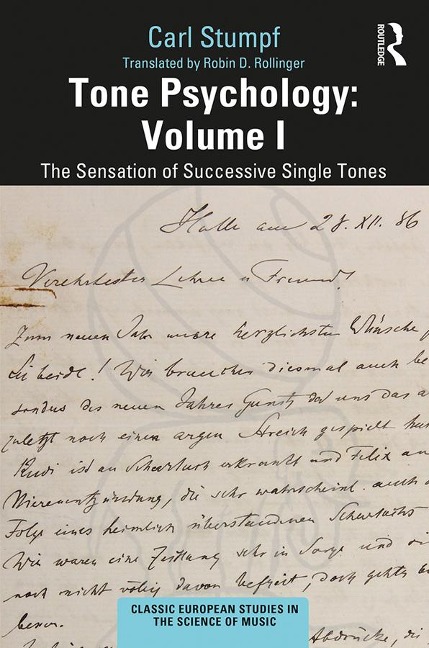 Carl Stumpf
Translated by Robin D. Rollinger
ROUTLEDGE
Tone Psychology:
Volume I
The Sensation of Successive Single Tones
Halle am 28. XII. 86
Verehrtester Lehrer u Freund!
Zum neuen Jahr unsre herzlichsten Wünsche f
Sie beide! Wir brauchen diesmal auch be
sonders des neuen Jahres Gunst, da uns das a
zuletzt noch einen argen Streich gespielt hat
Rudi ist an Scharlach erkrankt und Felix an
Nierenentzündung, die sehr wahrscheinl. auch
Folge eines heimlich überstandenen Scharlachs
Wir waren eine Zeitlang sehr in Sorge und
noch nicht völlig davon befreit, doch geht's
besser.
Abdrücke, die
CLASSIC EUROPEAN STUDIES IN
THE SCIENCE OF MUSIC